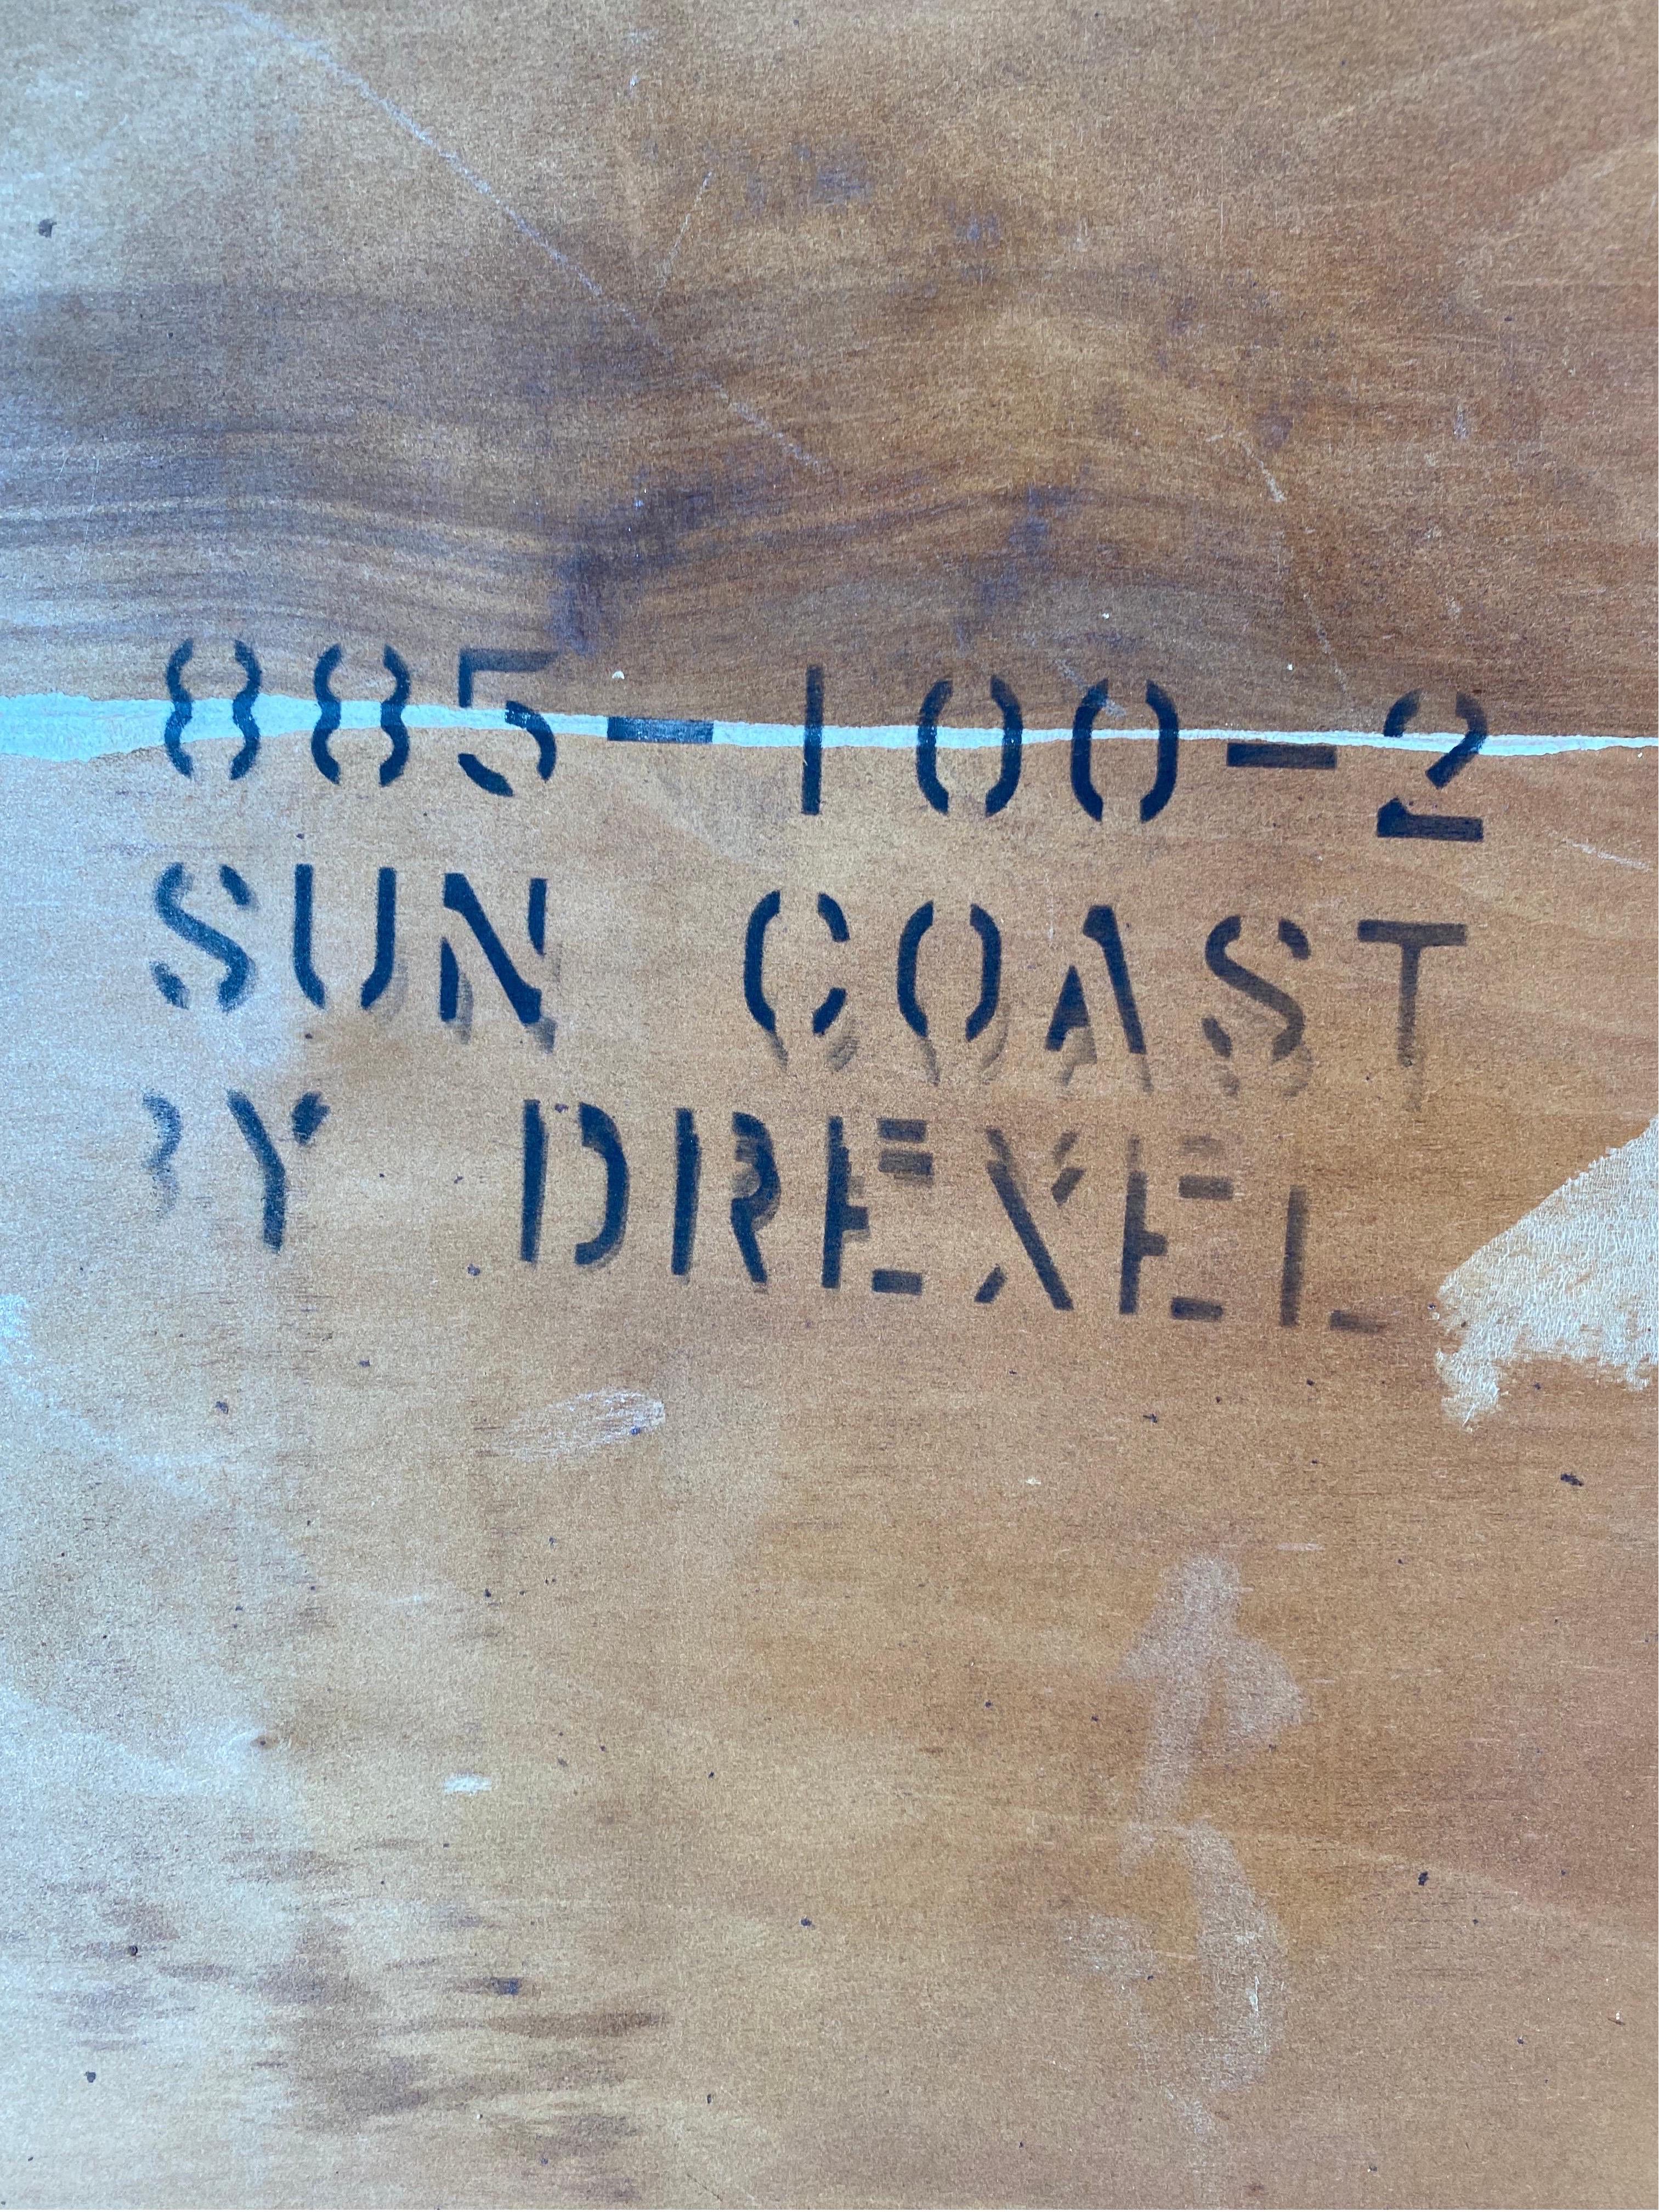 885-100-2
SUN COAST
BY DREXEL